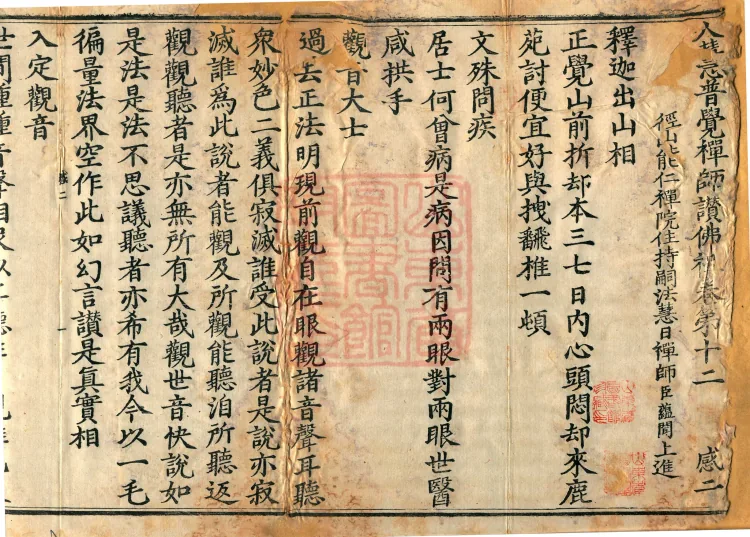 大慧普覺禪師讚佛祖卷第十二 感二
徑山能仁禪院住持嗣法慧日禪師臣蘊聞上進
釋迦出山相
正覺山前折却本三七日内心頭悶却來鹿
苑討便宜好與拽飜椎一頓
文殊問疾
居士何曾病是病因問有兩眼對兩眼世醫
咸拱手
觀音大士
過去正法明現前觀自在眼觀諸音聲耳聽
衆妙色二義俱寂滅誰受此説者是説亦寂
滅誰爲此説者能觀及所觀能聽洎所聽返
觀觀聽者是亦無所有大哉觀世音快説如
是法是法不思議聽者亦希有我今以一毛
徧量法界空作此如幻言讃是真實相
入定觀音
世間種種音聲相